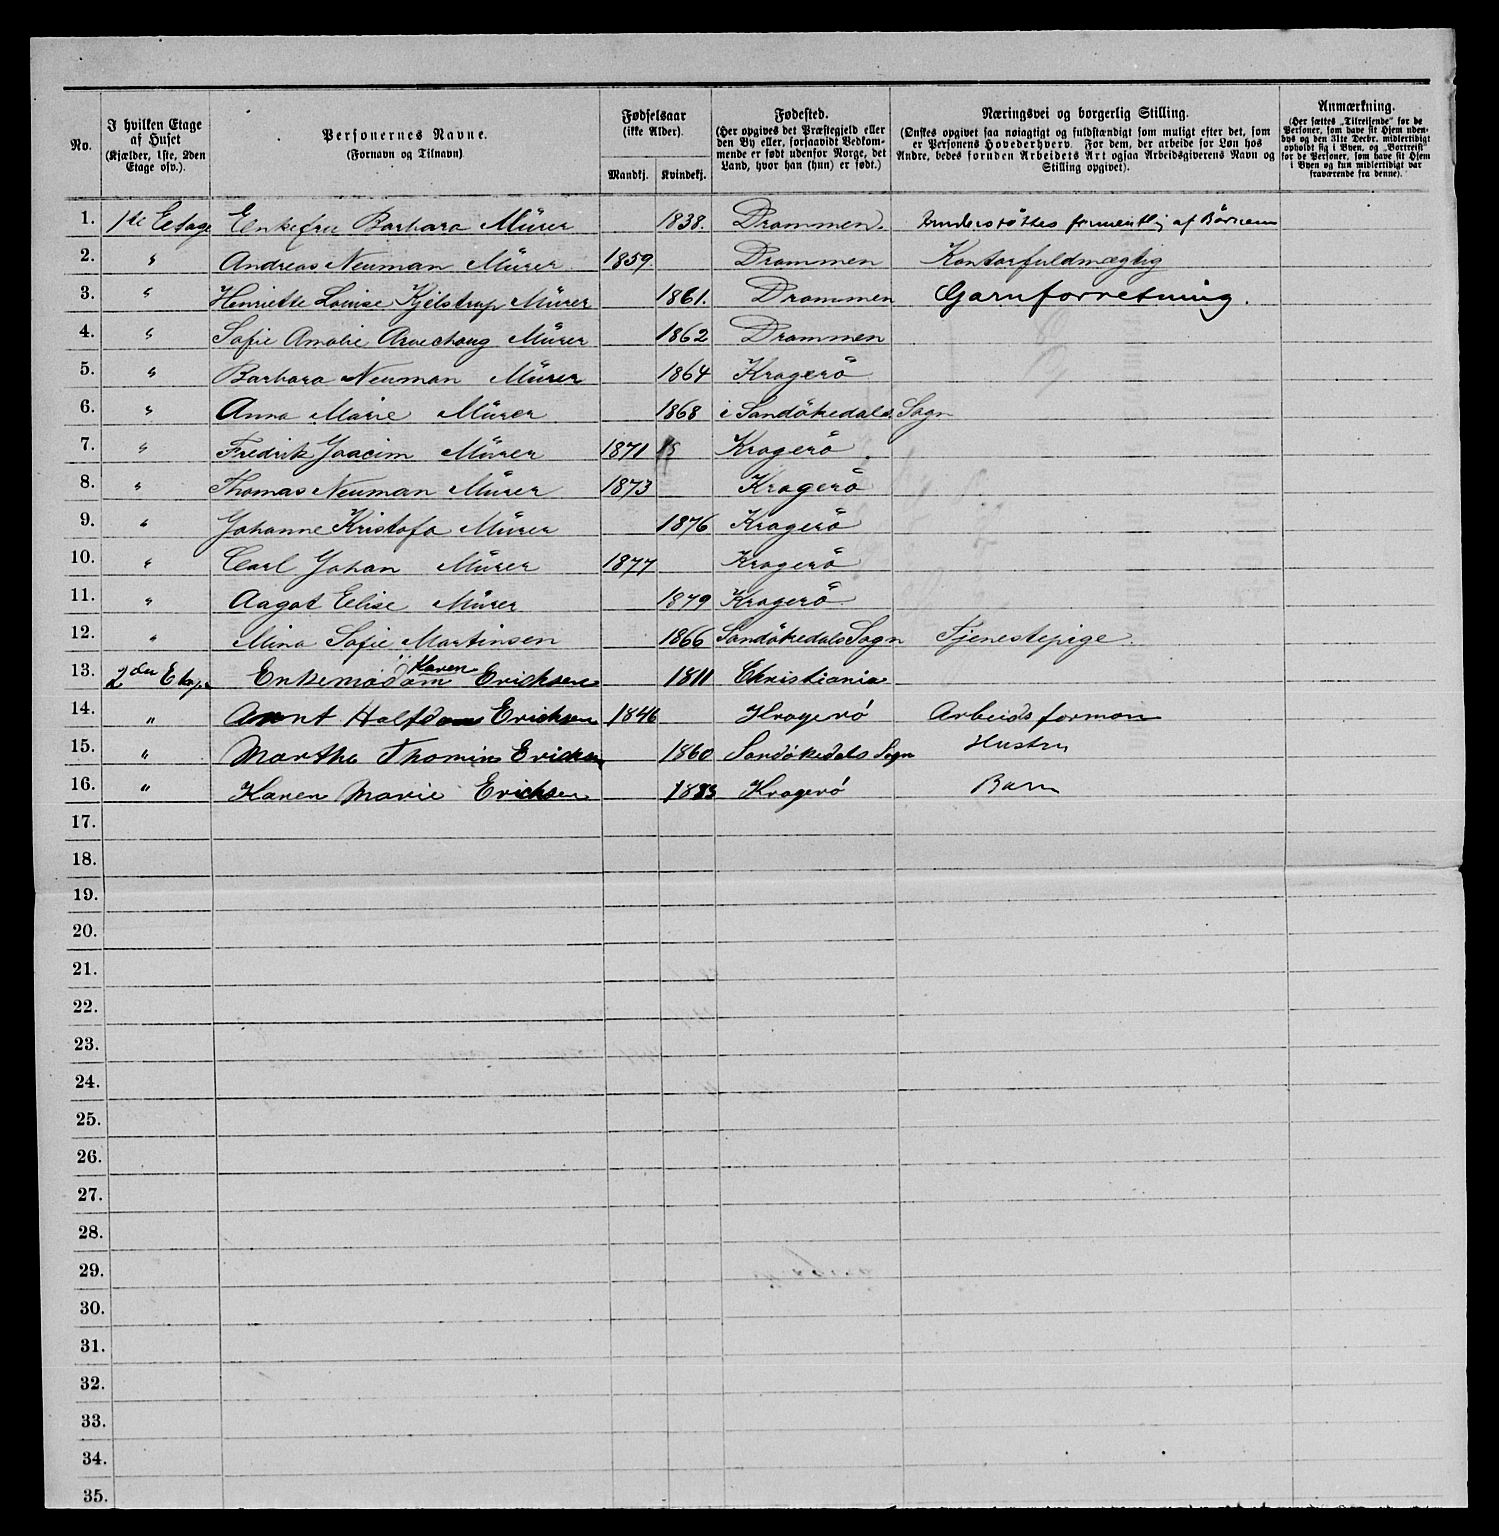 No.
I hvilken Etage
af Huset
(Kjælder, 1ste, 2den
Etage osv.).
Personernes Navne.
(Fornavn og Tilnavn)
Fødselsaar
(ikke Alder).
Mandkj. Kvindekj.
Fødested.
(Her opgives det Præstegjeld eller
den By eller, forsaavidt Vedkom-
mende er født udenfor Norge, det
Land, hvor han (hun) er født.)
Næringsvei og borgerlig Stilling.
(Ønskes opgivet saa nøiagtigt og fuldstændigt som muligt efter det, som
er Personens Hovederhverv. For dem, der arbeide for Løn hos
Andre, bedes foruden Arbeidets Art ogsaa Arbeidsgiverens Navn og
Stilling opgivet).
Anmærkning.
(Her sættes „Tilreisende“ for de
Personer, som have sit Hjem uden-
bys og den 31te Decbr. midlertidigt
opholdt sig i Byen, og „Bortreist“
for de Personer, som have sit Hjem
i Byen og kun midlertidigt var
fraværende fra denne).
1. 1ste Etage Enkefru Barbara Mürer 1838. Drammen. Understöttes formentlig af Börnene
2. " Andreas Neuman Mürer 1859 Drammen Kontorfuldmægtig
3. " Henriette Louise Kjelstrup Mürer 1861. Drammen Garnforretning.
4. " Sofie Amalie Mürer 1862 Drammen
5. " Barbara Neuman Mürer 1864 Kragerö
6. " Anna Marie Mürer 1868 i Sandökedals Sogn
7. " Fredrik Joacim Mürer 1871 Kragerö.
8. " Thomas Neuman Mürer 1873 Kragerö
9. " Johanne Kristofa Mürer 1876 Kragerö
10. " Carl Johan Mürer 1877 Kragerö
11. " Aagot Elise Mürer 1879 Kragerö.
12. " Mina Sofie Martinsen 1866 Sandökedals Sogn Tjenestepige.
13. 2den Etage Enkemadam Karen Erichsen 1811 Christiania
14. " Arnt Halfdan Erichsen 1846 Kragerø Arbeidsforman
15. " Marthe Thomine Erichsen 1860 Sandökedals Sogn Hustru
16. " Karen Marie Erichsen 1883 Kragerø Barn
17.
18.
19.
20.
21.
22.
23.
24.
25.
26.
27.
28.
29.
30.
31.
32.
33.
34.
35.